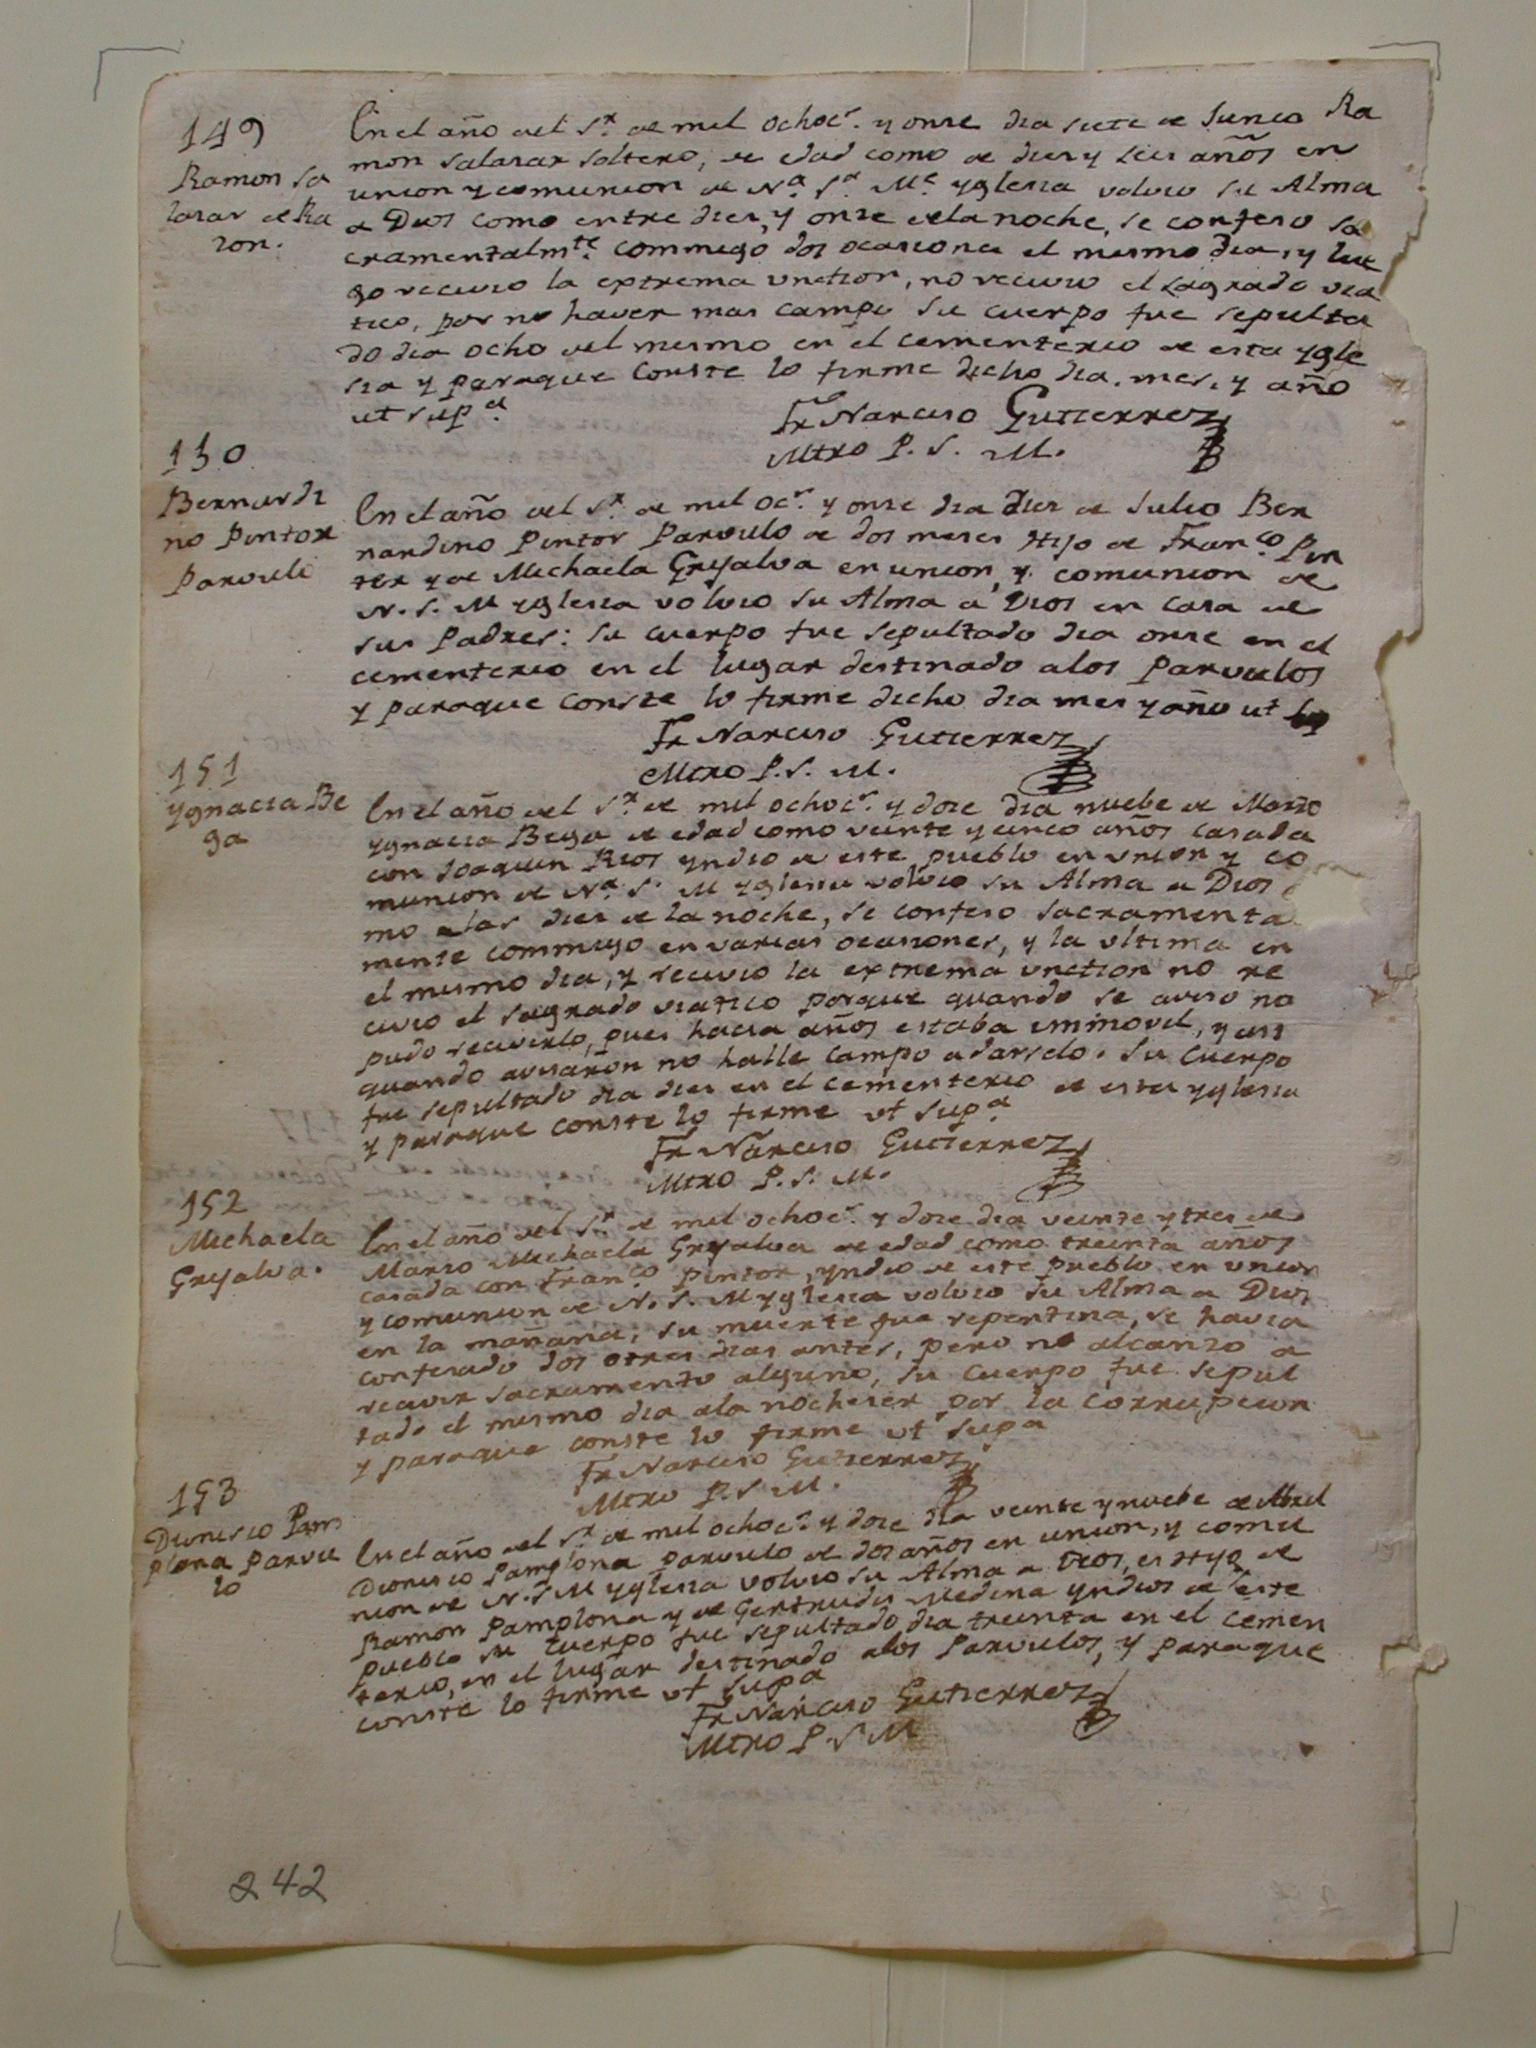 149
Ramon Sa
lasar de Ra
zon.
En el año del Sr. de mil ochocs. y onse dia siete de Junio Ra
mon Salasar soltero, de edad como de dies y seis años en
union y comunion de Na. Sa. Me. yglesia volvio su Alma
a Dios como entre dies, y onse dela noche, se confeso sa
cramentalmte. commigo dos ocasiones el mesmo dia, y lue
go recivio la extrema unction, no recivio el sagrado via
tico, por no haver mas campo su cuerpo fue sepulta
do dia ocho del mesmo en el cementerio de esta ygle
sia y paraque conste lo firme dicho dia, mes, y año
ut supa
Fr Narciso Gutierrez
Mtro P. S. M.
150
Bernardi
no Pintor
Parvulo
En el año del Sr. de mil ocs. y onse dia dies de Julio Ber
nardino Pintor Parvulo de dos meses Hijo de Franco. Pin
tor y de Michaela Gryalva en union, y comunion de
N. S. M yglesia volvio su Alma a Dios en casa de
sus Padres: su cuerpo fue sepultado dia onse en el
cementerio en el lugar destinado alos parvulos
y paraque conste lo firme dicho dia mes y año ut
Fr Narciso Gutierrez
Mtro P. S. M.
151
Ygnacia Be
ga
En el año del Sr. de mil ochocs. y dose dia nuebe de Marzo
ygnacia Bega de edad como veinte y cinco años casada
con Joaquin Rios yndio de este pueblo en union y co
munion de Na. S. M yglesia volvio su Alma a Dios
mo alas dies de la noche, se confeso sacramenta
mente commigo en varias ocasiones, y la ultima en
el mismo dia, y recivio la extrema unction no re
civio el sagrado viatico porque quando se aviso no
pudo recivirlo, pues hacia años estaba immovil, y assi
quando avisaron no halle campo adarselo. Su cuerpo
fue sepultado dia dies en el cementerio de esta yglesia
y paraque conste lo firme ut supa
Fr Narciso Gutierrez
Mtro P. S. M.
152
Michaela
Gryalva.
En el año del Sr. de mil ochocs. y dose dia veinte y tres de
Marzo Michaela Gryalva de edad como treinta años
casada con Franco Pintor, yndio de este pueblo en union
y comunion de N. S. M yglesia volvio su Alma a Dios
en la mañana; su muerte fue repentina, se havia
confesado dos otres dias antes, pero no alcanzo a
recivir sacramento alguno, su cuerpo fue sepul
tado el mismo dia ala nocheser por la corrupcion
y paraque conste lo firme ut supa
Fr Narciso Gutierrez
Mtro P. S M.
153
Dionisio Pam
plona parvu
lo
En el año del Sr. de mil ochocs. y dose dia veinte y nuebe de Abril
Dionisio Pamplona parvulo de dos años en union, y comu
nion de N. S M yglesia volvio su Alma a Dios, es Hijo de
Ramon Pamplona y de Gertrudis Medina yndios de este
pueblo su cuerpo fue sepultado dia treinta en el cemen
terio, en el lugar destinado alos Parvulos, y paraque
conste lo firme ut supa
Fr Narciso Gutierrez
Mtro P. S M
242